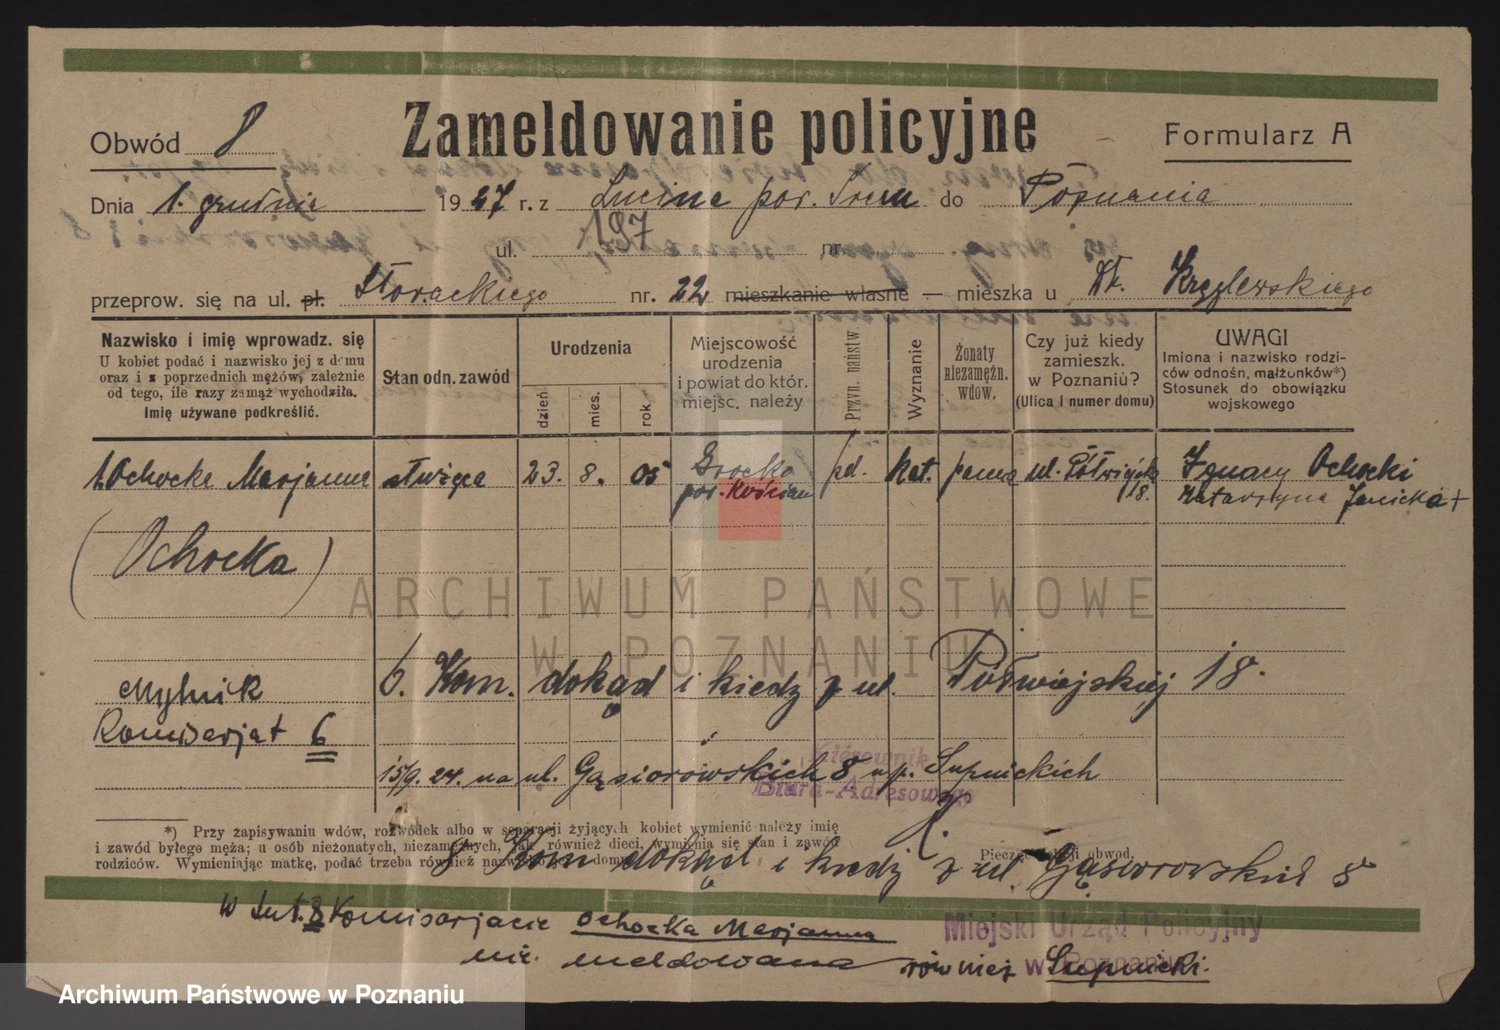 Obwód 8
Zameldowanie policyjne
Formularz A
Dnia 1. grudnia 1927 r. z Lucina pow. Śrem do Poznania
ul. 197 nr.
przeprow. się na ul. pl. Słorackiego nr. 22 mieszkanie własne — mieszka u Dr. Kręglewskiego
Nazwisko i imię wprowadz. się
U kobiet podać i nazwisko jej z domu
oraz i z poprzednich mężów, zależnie
od tego, ile razy zamąż wychodziła.
Imię używane podkreślić.
Stan odn. zawód
Urodzenia
dzień
mies.
rok
Miejscowość
urodzenia
i powiat do któr.
miejsc. należy
Przyn. państw
Wyznanie
Żonaty
niezamężn.
wdów.
Czy już kiedy
zamieszk.
w Poznaniu?
(Ulica i numer domu)
UWAGI
Imiona i nazwisko rodzi-
ców odnośn. małżonków*)
Stosunek do obowiązku
wojskowego
1. Ochocke Marjanna służąca 23. 8. 05 pol. kat. panna ul. Półwiejska 18. Ignacy Ochocki
pow. Kościan Katarzyna Janicka +
(Ochocka)
ARCHIWUM PAŃSTWOWE
W POZNANIU
Mylnik
Komisarjat 6
6. Kom. dokąd i kiedy z ul. Półwiejskiej 18.
15/9. 24. na ul. Gąsiorowskich 8 u p. Supnickich
Kierownik
Biura-Adresowego
*) Przy zapisywaniu wdów, rozwódek albo w separacji żyjących kobiet wymienić należy imię
i zawód byłego męża; u osób nieżonatych, niezamężnych, jak również dieci, wymienia się stan i zawód
rodziców. Wymieniając matkę, podać trzeba również nazwisko domu.
Pieczęć policji obwod.
8 Kom dokąd i kiedy z ul. Gąsiorowskich 8
w tut. 8 Komisarjacie Ochocka Marjanna
nie meldowana również Supnicki.
Miejski Urząd Policyjny
w Poznaniu
Archiwum Państwowe w Poznaniu